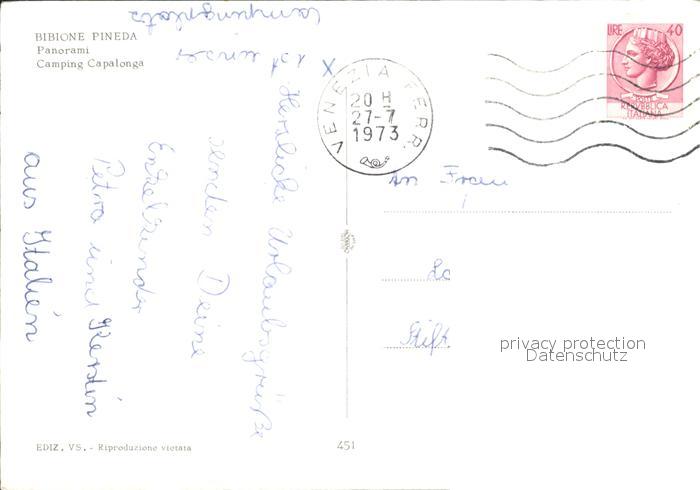 BIBIONE PINEDA
Panorami
Camping Capalonga
Campingplatz
x
x
Herzliche Urlaubsgrüße
senden Deine
Enkelkinder
Petra und Kerstin
aus Italien
VENEZIA FERR.
20 H
27-7
1973
LIRE 40
POSTE
REPVBBLICA
ITALIANA
An Frau
Lo
Stift
privacy protection
Datenschutz
EDIZ. VS. - Riproduzione vietata
451